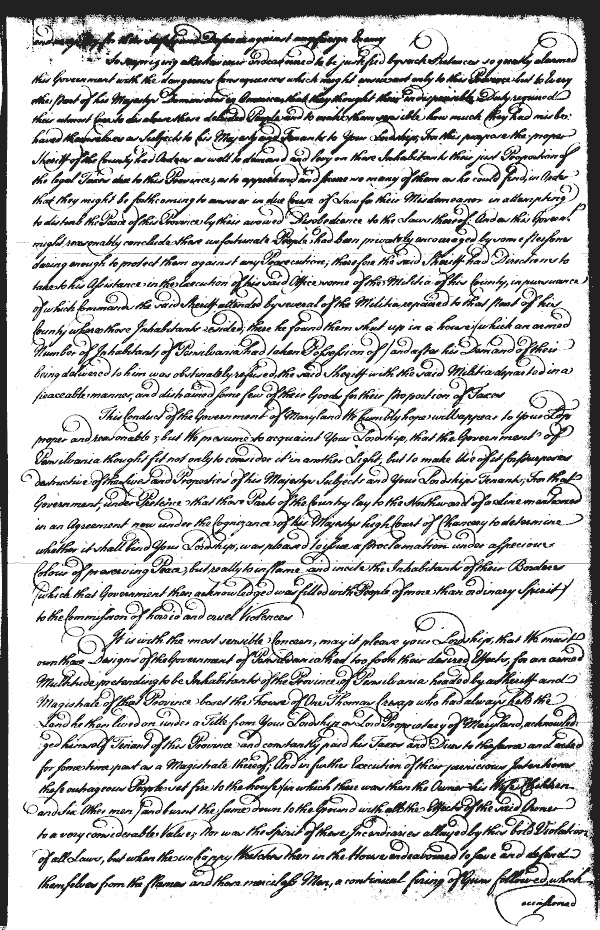 and supply for their Safety and Defence against any foreign Enemy
So surprizing a Behaviour Endeavoured to be justifi'd by such Pretences so greatly alarmed
this Government with the dangerous Consequences which might ensue not only to this Province but to Every
other part of his Majestys Dominions in America, that they thought their indispensible Duty required
their utmost Care to undeceive these deluded People, and to make them sensible how much they had misbe-
haved themselves as Subjects to his Majesty and Tenants to Your Lordship, For this purpose the proper
Sheriff of the County had Orders as well to demand and levy on these Inhabitants their just Proportion of
the legal Taxes due to this Province, as to apprehend and secure so many of them as he could find, in Order
that they might be forthcoming to answer in due Course of Law for their Misdemeanor in attempting
to disturb the Peace of this Province by their avowed Disobedience to the Laws thereof. And as this Governmt
might reasonably conclude these unfortunate People had been privately encouraged by some persons
daring enough to protect them against any Prosecution; therefore the said Sheriff had Directions to
take to his Assistance in the Execution of his said Office some of the Militia of his County, in pursuance
of which Commands the said Sheriff attended by several of the Militia repaired to that Part of his
County where those Inhabitants resided, there he found them shut up in a house (which an armed
Number of Inhabitants of Pensilvania had taken Possession of) and after his Demand of their
being delivered to him was obstinately refused, the said Sheriff with the said Militia departed in a
peaceable manner, and distrained some few of their Goods for their proportion of Taxes
This Conduct of the Government of Maryland We humbly hope will appear to Your Ldp
proper and reasonable; but We presume to acquaint Your Lordship, that the Government of
Pensilvania thought fit not only to consider it in another Light, but to make Use of it for purposes
destructive of the Lives and Properties of his Majestys Subjects and Your Lordships Tenants; For that
Government, under Pretence that those Parts of the Country lay to the Northward of a Line mentioned
in an Agreement now under the Cognizance of his Majestys high Court of Chancery to determine
whether it shall bind Your Lordship, was pleased to issue a Proclamation under a specious
Colour of preserving Peace, but really to inflame and incite the Inhabitants of their Borders
(which that Government then acknowledged was filled with People of more than ordinary Spirit)
to the Commission of horrid and cruel Violences
It is with the most sensible Concern, may it please your Lordship, that We must
own these Designs of the Government of Pensilvania had too soon their desired Effects, for an armed
Multitude, pretending to be Inhabitants of the Province of Pensilvania headed by a Sheriff and
Magistrate of that Province beset the house of One Thomas Cresap who had always held the
Land he then lived on under a Title from Your Lordship as Lord Proprietary of Maryland, acknowled
ged himself Tenant of this Province and constantly paid his Taxes and Dues to the same and acted
for some time past as a Magistrate thereof; And in further Execution of their pernicious Intentions
these outragious People set fire to the house (in which there was then the Owner his Wife Children
and six other men) and burnt the same down to the Ground with all the Effects of the said Owner
to a very considerable Value; Nor was the Spirit of these Incendiaries allayed by this bold Violation
of all Laws, but when the unhappy Wretches then in the House endeavoured to save and defend
themselves from the flames and these merciless Men, a continual firing of Guns followed, which
occasioned